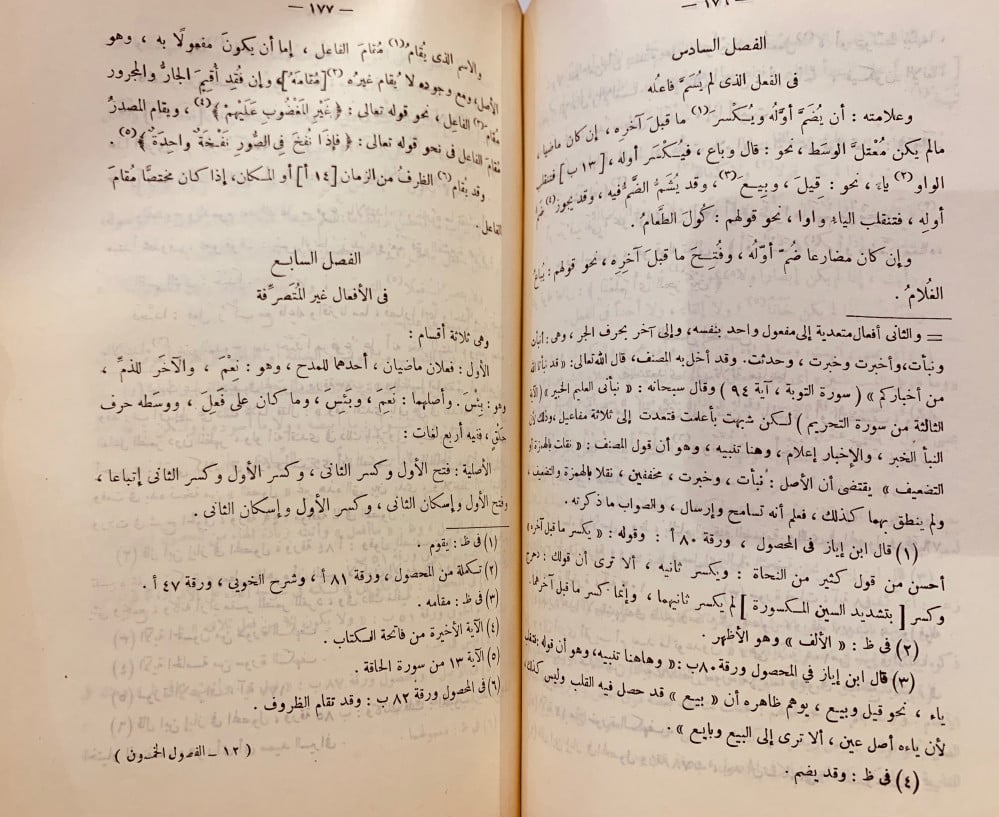 — ١٧٦ —
الفصل السادس
فى الفعل الذى لم يُسَمَّ فاعلُه
وعلامته : أن يُضَمَّ أوَّلُه ويُكْسرَ (١) ما قبلَ آخرِه ، إن كان ماضيا ،
مالم يكن مُعْتلَّ الوسَط ، نحو : قال وباع ، فيُكْسَر أوله ، [ ١٣ ب ] فتنقلب
الواو (٢) ياءً ، نحو : قِيلَ ، وبِيعَ (٣) ، وقد يُشَمُّ الضَّمُّ فيه ، وقد يجوز (٤) ضَمُّ
أولِه ، فتنقلب الياءُ واوا ، نحو قولهم : كُولَ الطَّعامُ .
وإن كان مضارعا ضُمَّ أوّلُه ، وفُتِحَ ما قبلَ آخرِه ، نحو قولهم : يُباعُ
الغُلامُ .
= والثانى أفعال متعدية إلى مفعول واحد بنفسه ، وإلى آخر بحرف الجر ، وهى : أنبأت
ونبأت ، وأخبرت وخبرت ، وحدثت . وقد أخل به المصنف ، قال الله تعالى : « قد نبأنا الله
من أخباركم » ( سورة التوبة ، آية ٩٤ ) وقال سبحانه : « نبأنى العليم الخبير » ( الآية
الثالثة من سورة التحريم ) لكن شبهت بأعلمت فتعدت إلى ثلاثة مفاعيل ، وذلك لأن
النبأ الخبر ، والإخبار إعلام ، وهنا تنبيه ، وهو أن قول المصنف : « نقلت بالهمزة أو
التضعيف » يقتضى أن الأصل : نُبأت ، وخبرت ، مخففين ، نقلا بالهمزة والتضعيف ،
ولم ينطق بهما كذلك ، فعلم أنه تسامح وإرسال ، والصواب ما ذكرته .
(١) قال ابن إياز فى المحصول ، ورقة ٨٠ أ : وقوله : « يكسر ما قبل آخره »
أحسن من قول كثير من النحاة : ويكسر ثانيه ، ألا ترى أن قولك : دحرج
وكسر [ بتشديد السين المكسورة ] لم يكسر ثانيهما ، وإنما كسر ما قبل آخرهما .
(٢) فى ظ : « الألف » وهو الأظهر .
(٣) قال ابن إياز فى المحصول ورقة ٨٠ ب : « وهاهنا تنبيه ، وهو أن قوله : فتنقلب
ياء ، نحو قيل وبيع ، يوهم ظاهره أن « بيع » قد حصل فيه القلب وليس كذلك ،
لأن ياءه أصل عين ، ألا ترى إلى البيع وبايع » .
(٤) فى ظ : وقد يضم .
— ١٧٧ —
والاسم الذى يُقامُ (١) مُقامَ الفاعل ، إما أن يكونَ مفعولًا به ، وهو
الأصل ، ومع وجوده لا يُقام غيرُه (٢) [ مُقامَهُ ] ، وإن فُقِد أُقيمَ الجارُّ والمجرور
مقام (٣) الفاعِل ، نحو قوله تعالى : ﴿ غَيْرِ المَغْضُوبِ عَلَيْهِمْ ﴾ (٤) ، ويقام المصدرُ
مُقامَ الفاعل فى نحو قوله تعالى : ﴿ فإذَا نُفِخَ فِى الصُّورِ نَفْخَةٌ واحِدَةٌ ﴾ (٥) .
وقد يُقامُ (٦) الظرفُ من الزمان [ ١٤ أ ] أو المكان ، إذا كان مختصًّا مُقامَ
الفاعل .
الفصل السابع
فى الأفعال غير المُتَصرِّفة
وهى ثلاثة أقسام :
الأول : فعلان ماضيان ، أحدهما للمدح ، وهو : نِعْمَ ، والآخَر للذمِّ ،
وهو : بِئْسَ . وأصلهما : نَعِمَ ، وبَئِسَ ، وما كان على فَعِلَ ، ووسَطه حرف
حَلْقٍ ، ففيه أربع لغات :
الأصلية : فتح الأول وكسر الثانى ، وكسر الأول وكسر الثانى إتباعا ،
وفتح الأول وإسكان الثانى ، وكسر الأول وإسكان الثانى .
(١) فى ظ : يقوم .
(٢) تكملة من المحصول ، ورقة ٨١ أ ، وشرح الخويى ، ورقة ٤٧ أ .
(٣) فى ظ : مقامه .
(٤) الآية الأخيرة من فاتحة الكتاب .
(٥) الآية ١٣ من سورة الحاقة .
(٦) فى المحصول ورقة ٨٢ ب : وقد تقام الظروف .
( ١٢ – الفصول الخمسون )